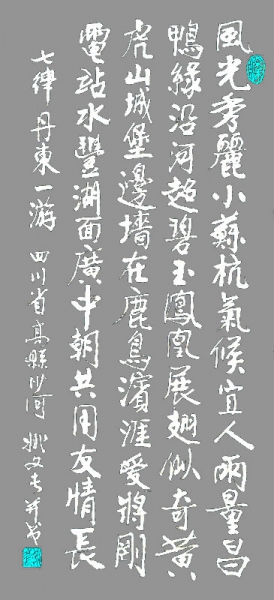 風光秀麗小蘇杭氣候宜人雨量昌
鴨綠沿河超碧玉鳳凰展翅似奇黃
虎山城堡邊墻在鹿鳥濱涯愛將剛
電站水豐湖面廣中朝共用友情長
七律丹東一游 四川省高縣沙河